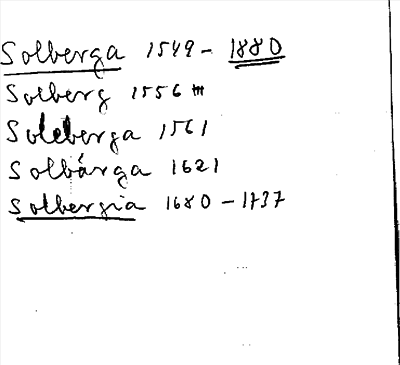 Solberga 1549 - 1880
Solberg 1556 m
Soleberga 1561
Solbärga 1621
Solbergia 1680 - 1737